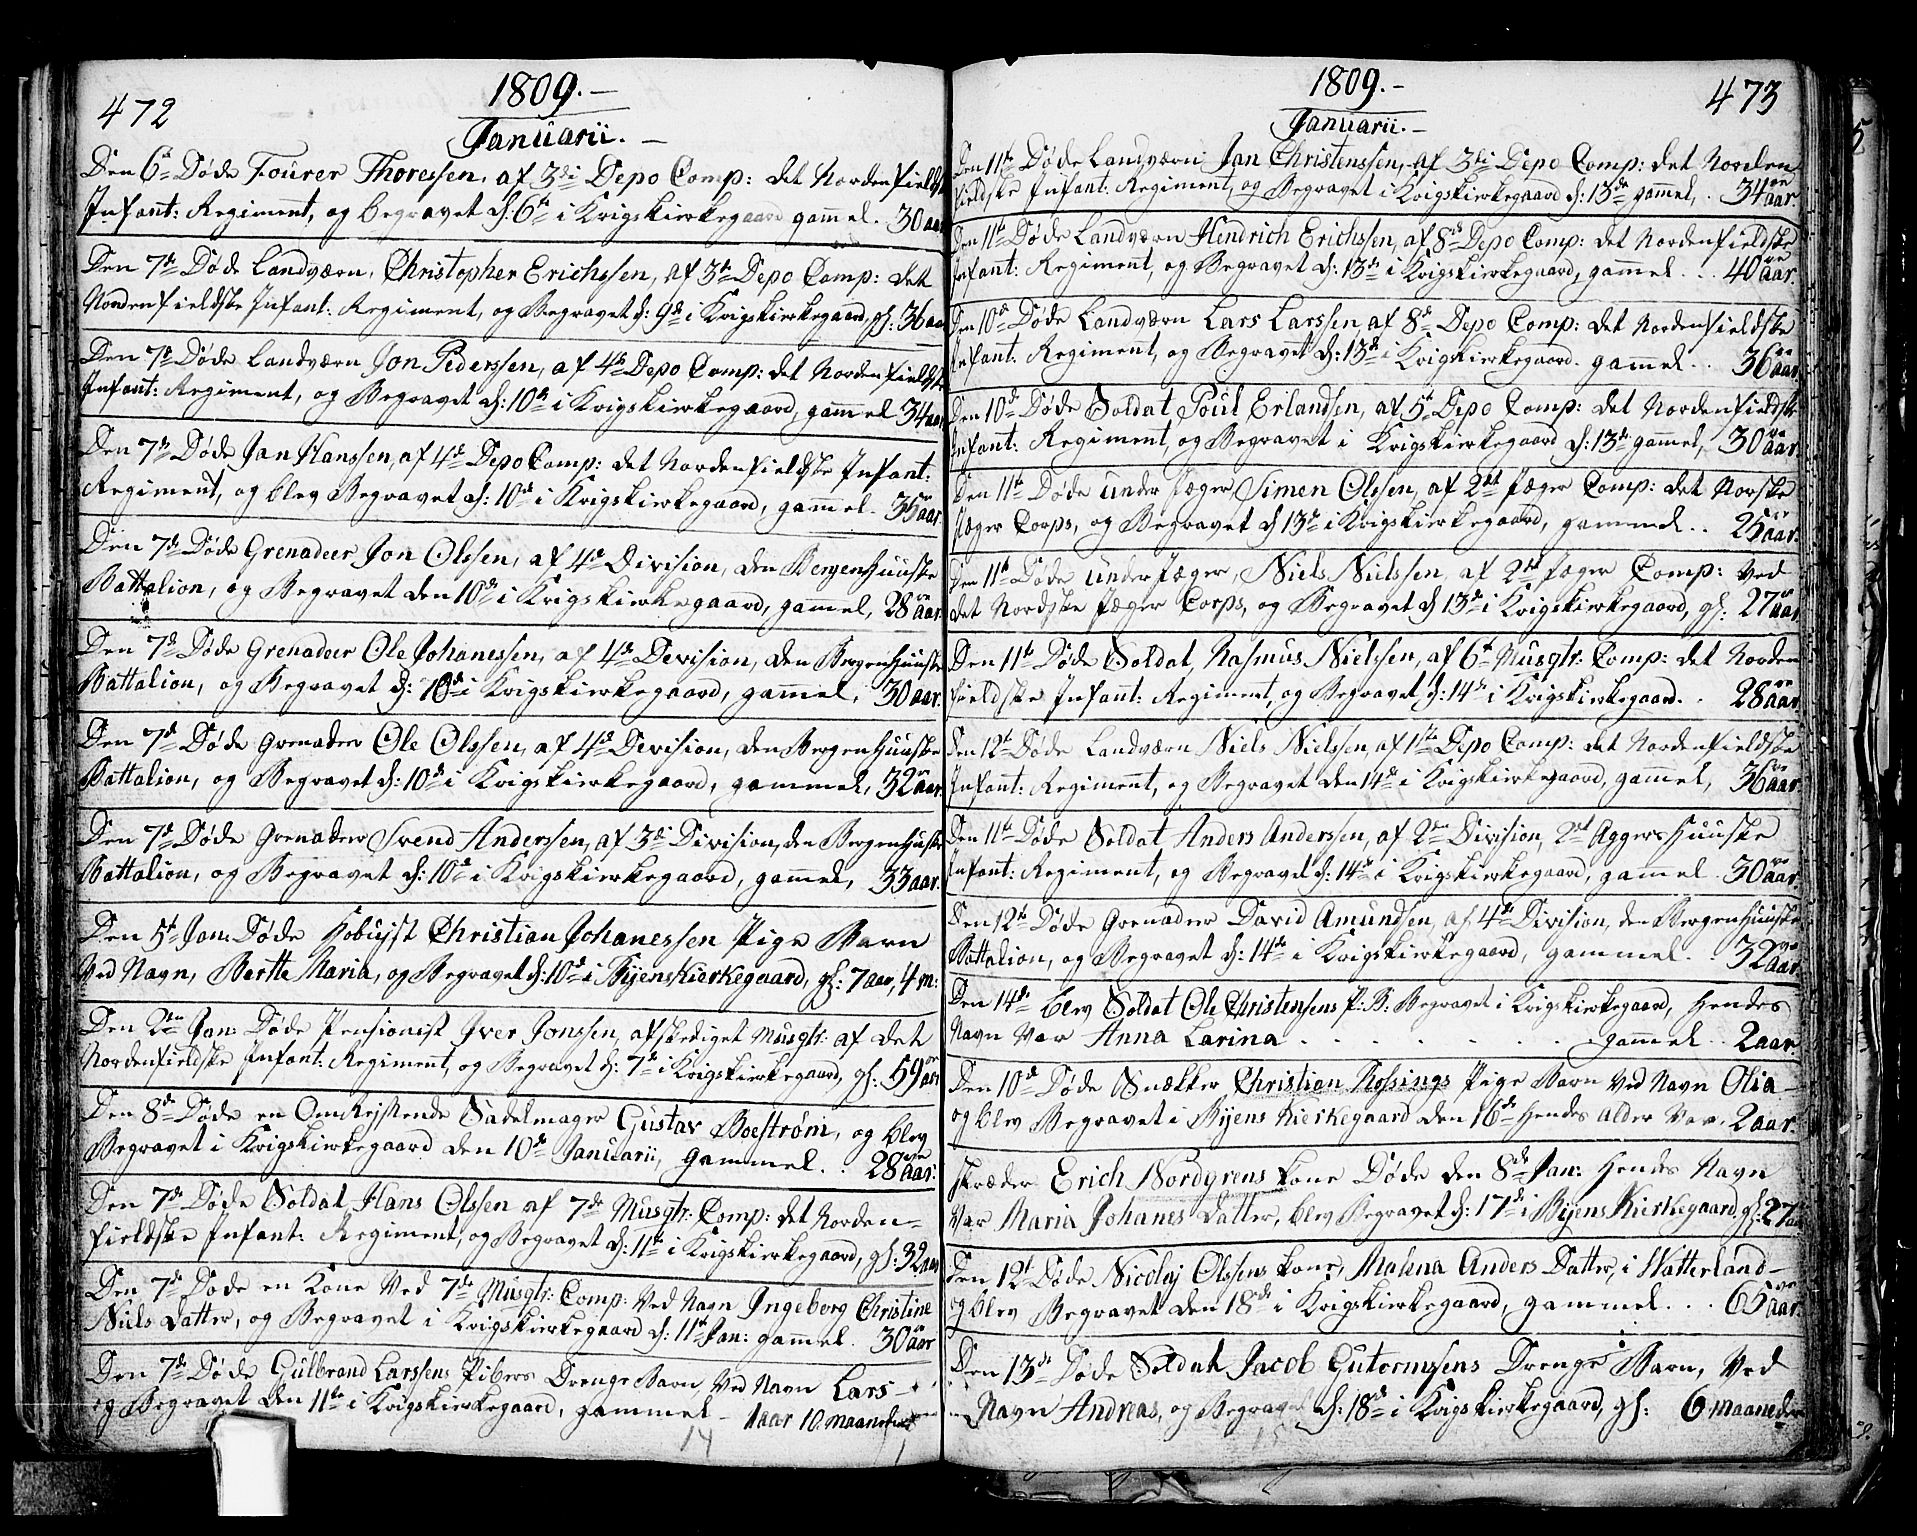 472
1809.-
Januarii.-
Den 6te Døde Fourer Thoressen, af 3die Depo Comp: det Nordenfieldske
Infant: Regiment, og begravet d: 6te i Krigskierkegaard gammel. 30 aar
Den 7de Døde Landværn, Christopher Erichssen, af 3de Depo Comp: det
Nordenfieldske Infant: Regiment, og Begravet d: 9de i Krigskierkegaard, gl: 36 aar
Den 7de Døde Landværn Jon Pederssen, af 4de Depo Comp: det Nordenfieldske
Infant: Regiment, og Begravet d: 10de i Krigskierkegaard, gammel 34 aar
Den 7de Døde Jan Hanssen, af 4de Depo Comp: det Nordenfieldske Infant:
Regiment, og blev Begravet d: 10de i Krigskierkegaard, gammel. 35 aar.
Den 7de Døde Grenadeer Jon Olssen, af 4de Division, den Bergenhuuske
Battalion, og Begravet den 10de i Krigskierkegaard, gammel, 28 aar.
Den 7de Døde Grenadeer Ole Johanessen, af 4de Devision, den Bergenhuuske
Battalion, og Begravet d: 10de i Krigskierkegaard, gammel, 30 aar.
Den 7de Døde Grenadeer Ole Olssen, af 4de Division, den Bergenhuuske
Battalion, og Begravet d: 10de i Krigskierkegaard, gammel, 32 aar.
Den 7de Døde Grenadeer Svend Anderssen, af 3die Division, den Bergenhuuske
Battalion, og Begravet d: 10de i Krigskierkegaard, gammel, 33 aar.
Den 5t Jan: Døde Christian Johanessen Pige Barn
Ved Navn, Berthe Maria, og Begravet d: 10de i Byens Kierkegaard, gl: 7 aar, 4 m:
Den 2den Jan: Døde Pensionist Iver Jonssen, afskediget Musqtr: af det
Nordenfieldske Infant: Regiment, og Begravet d: 7de i Krigskierkegaard, gl: 59 aar
Den 8de Døde en Omreisende Sadelmager Gustav Boestrøm, og blev
Begravet i Krigskierkegaard den 10de Januarii, gammel. . 28 aar.
Den 7de Døde Soldat Hans Olssen af 7de Musqtr: Comp: det Norden-
fieldske Infant: Regiment, og Begravet d: 11te i Krigskierkegaard, gl: 32 aar
Den 7de Døde en Kone Ved 7de Musqtr: Comp: Ved Navn Ingeborg Christine
Niels Datter, og Begravet i Krigskierkegaard d: 11te Jan: gammel. 30 aar
Den 7de Døde Gulbrand Larssens Pibers Drenge Barn Ved Navn Lars-
og Begravet den 11te i Krigskierkegaard, gammel - 1 aar 10. maaneder
14
1809.-
473
Januarii.-
Den 11te Døde Landværn Jan Christenssen, af 3die Depo Comp: det Norden
fieldske Infant: Regiment, og Begravet i Krigskierkegaard d: 13de gammel, . 34 aar.
Den 11te Døde Landværn Hendrich Erichssen, af 8de Depo Comp: det Nordenfieldske
Infant: Regiment, og Begravet d: 13de i Krigskierkegaard, gammel . . . 40 aar.
Den 10de Døde Landværn Lars Larssen af 8de Depo Comp: det Nordenfieldske
Infant: Regiment, og Begravet d: 13de i Krigskierkegaard. gammel . . 36 aar.
Den 10de Døde Soldat Poul Erlandsen, af 5te Depo Comp: det Nordenfieldske
Infant: Regiment, og Begravet i Krigskierkegaard d: 13de gammel, 30 aar.
Den 11te Døde under Jæger Simen Olssen, af 2det Jæger Comp: det Norske
Jæger Corps, og Begravet d 13de i Krigskierkegaard, gammel . . 25 aar.
Den 11te Døde under Jæger, Niels Nielssen, af 2det Jæger Comp: Ved
det Nordske Jæger Corps, og Begravet d 13de i Krigskierkegaard, gl: 27 aar.
Den 11te Døde Soldat, Rasmus Nielssen, af 6te Musqtr: Comp: det Norden
fieldske Infant: Regiment, og Begravet d: 14de i Krigskierkegaard. . 28 aar.
Den 12te Døde Landværn Niels Nielssen, af 1ste Depo Comp: det Nordenfieldske
Infant: Regiment, og Begravet den 14de i Krigskierkegaard, gammel, 36 aar.
Den 11te Døde Soldat Anders Anderssen, af 2den Division, 2det Aggershuuske
Infant: Regiment, og Begravet d: 14de i Krigskierkegaard, gammel . 30 aar.
Den 12te Døde Grenadeer David Amundsen, af 4de Division, den Bergenhuuske
Battalion, og Begravet d: 14de i Krigskierkegaard, gammel. . 32 aar.
Den 14de blev Soldat Ole Christensens P: B: Begravet i Krigskierkegaard, Hendes
Navn Var Anna Larina . . . . . . . gammel . . 2 aar.
Den 10de Døde Snækker Christian Rossings Pige Barn Ved Navn Olia-
og blev Begravet i Byens Kierkegaard den 16de Hendes alder Var, 2 aar.
Skræder Erich Nordgrens Kone Døde den 8de Jan: Hendes Navn
Var Maria Johanes Datter, blev Begravet d: 17de i Byens Kierkegaard, gl: 27 aar
Den 12t Døde Nicolaj Olssens Kone, Malena Anders Datter, i Watterland-
og blev Begravet den 18de i Krigskierkegaard, gammel . . . 65 aar.
Den 13de Døde Soldat Jacob Gutormsens Drenge Barn, Ved
Navn Andreas, og Begravet d: 18de i Krigskierkegaard, gl: 6 maaneder
15